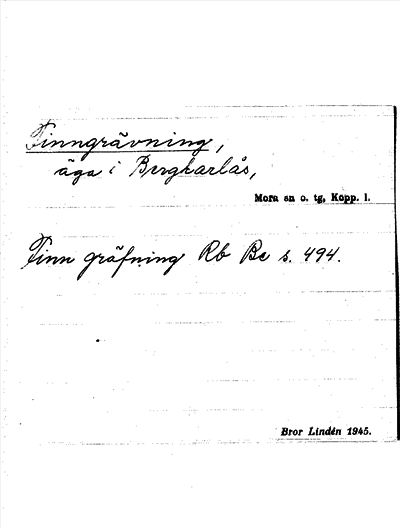 Finngrävning,
äga i Bergkarlås,
Mora sn o. tg, Kopp. l.
Finn gräfning Rb Be s. 494.
Bror Lindén 1945.